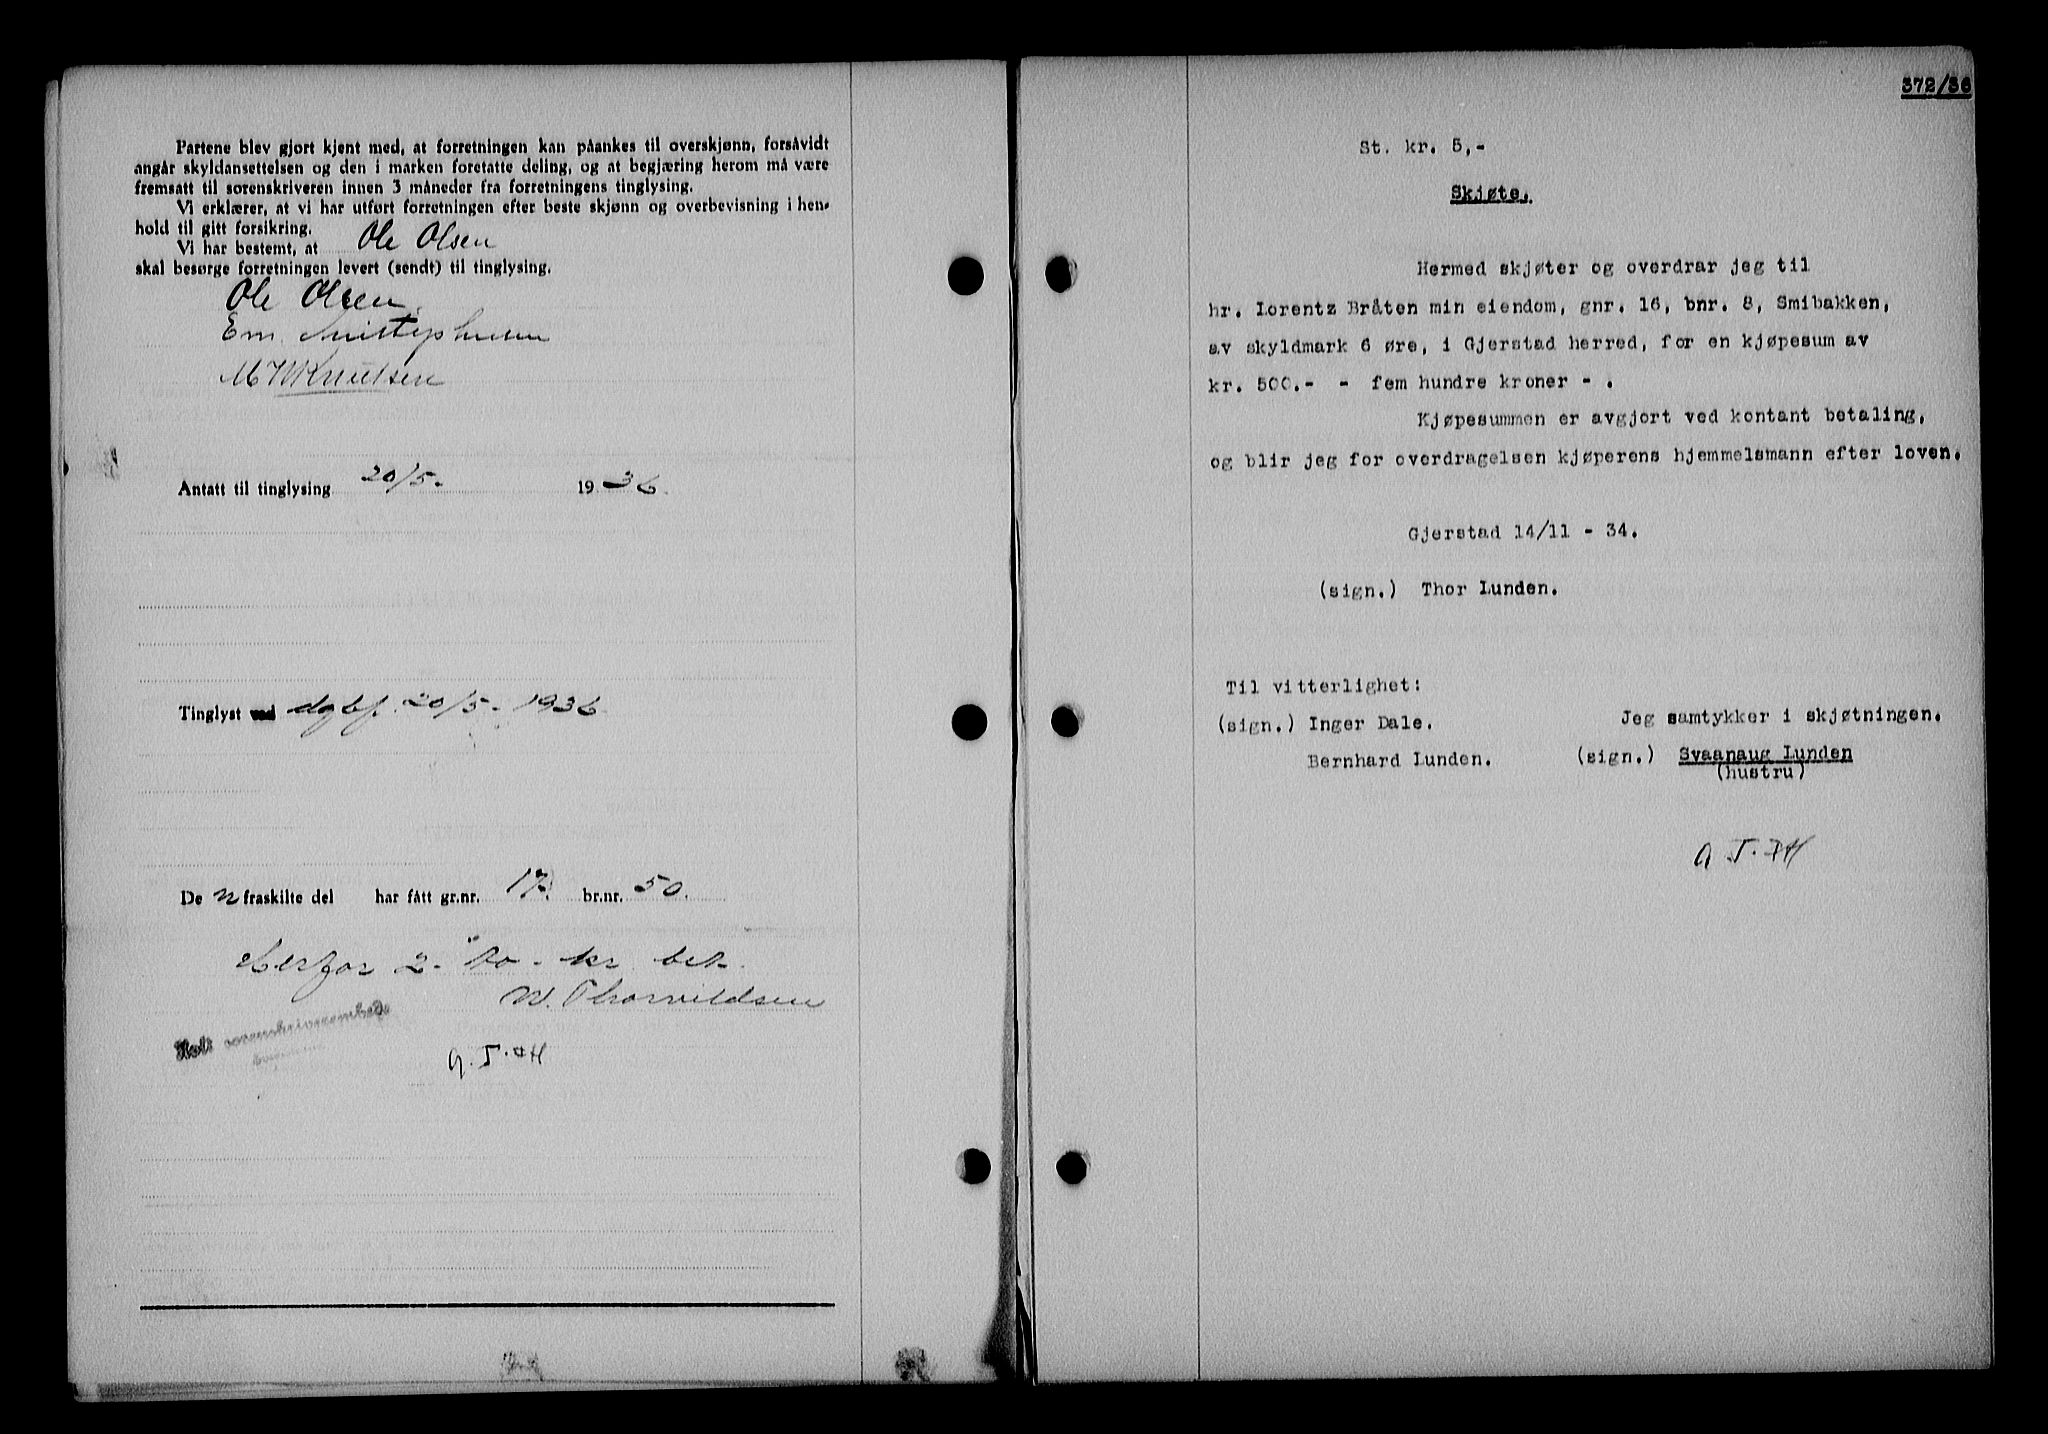 Partene blev gjort kjent med, at forretningen kan påankes til overskjønn, forsåvidt
angår skyldansettelsen og den i marken foretatte deling, og at begjæring herom må være
fremsatt til sorenskriveren innen 3 måneder fra forretningens tinglysing.
Vi erklærer, at vi har utført forretningen efter beste skjønn og overbevisning i hen-
hold til gitt forsikring.
Vi har bestemt, at Ole Olsen
skal besørge forretningen levert (sendt) til tinglysing.
Ole Olsen
Em.
M Knutsen
Antatt til tinglysing 20/5- 1936.
Tinglyst ved dgbf. 20/5- 1936
De n fraskilte del har fått gr.nr. 17. br.nr. 50.
Herfor 2- to - kr bet.
N. Thorvildsen
Holt sorenskriverembede
372/36
St. kr. 5,-
Skjøte.
Hermed skjøter og overdrar jeg til
hr. Lorentz Bråten min eiendom, gnr. 16, bnr. 8, Smibakken,
av skyldmark 6 øre, i Gjerstad herred, for en kjøpesum av
kr. 500.- - fem hundre kroner - .
Kjøpesummen er avgjort ved kontant betaling,
og blir jeg for overdragelsen kjøperens hjemmelsmann efter loven.
Gjerstad 14/11 - 34.
(sign.) Thor Lunden.
Til vitterlighet:
(sign.) Inger Dale.
Bernhard Lunden.
Jeg samtykker i skjøtningen.
(sign.) Svaanaug Lunden
(hustru)